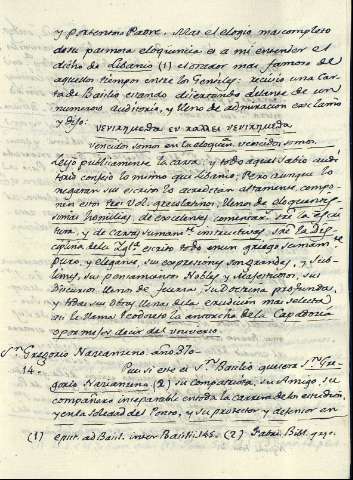 y portentoso Padre. Mas el elogio mas completo
de su pasmosa eloqüencia es a mi entender el
dicho de Libanio (1) el orador mas famoso de
aquellos tiempos entre los Gentiles: recivio una Car-
ta de Basilio estando disertando delante de un
numeroso auditorio, y lleno de admiracion esclamo
y dijo:
vencidos somos en la eloqüen. vencidos somos
leyo publicamente la carta: y todo aquel sabio audi-
torio confesò lo mismo que Libanio. Pero aunque lo
negaran sus escritos lo acreditan altamente, compo-
nense estos tres Vol. greco latinos, llenos de eloquentes
homilias, de excelentes comentar. sre la escri-
tura, y de cartas sumam.te instructivas sre la Dici-
plina de la Igl.a escrito todo en un griego sumam.te
puro, y elegante, sus expresiones son grandes, y su-
blimes, sus pensamientos Nobles y Magestuosos, sus
Discursos llenos de fuerza, su Doctrina profunda,
y todas sus obras llenas de la erudicion mas selecta
su le llama Teodoreto la antorcha de la Capadocia
o por mejor decir del universo.
S.n Gregorio Nazianzeno año 370.
14. Pues si este es S.n Basilio que sera S.n Gre-
gorio Nazianzeno (2) su compatriota, su Amigo, su
compañero inseparable en toda la carrera de los estudios,
y en la soledad del Ponto, y su protector y defensor en
(1) epist. ad Basil. inter Basilii 145. (2) Fabri. Bibl. grego.